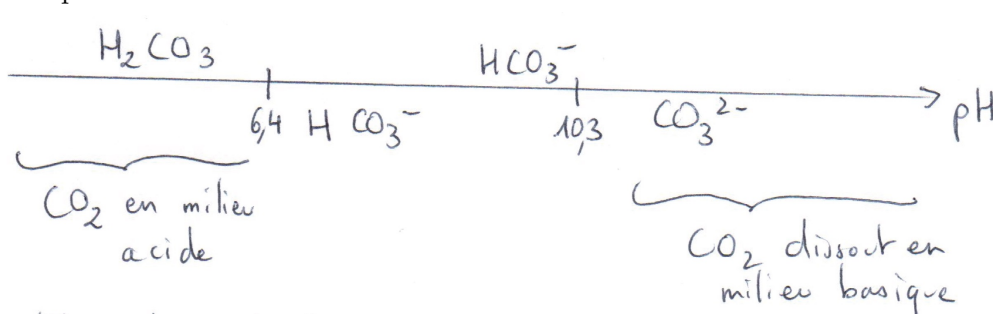 H₂CO₃
HCO₃⁻
6,4 H CO₃⁻
10,3
CO₃²⁻
pH
CO₂ en milieu
acide
CO₂ dissout en
milieu basique